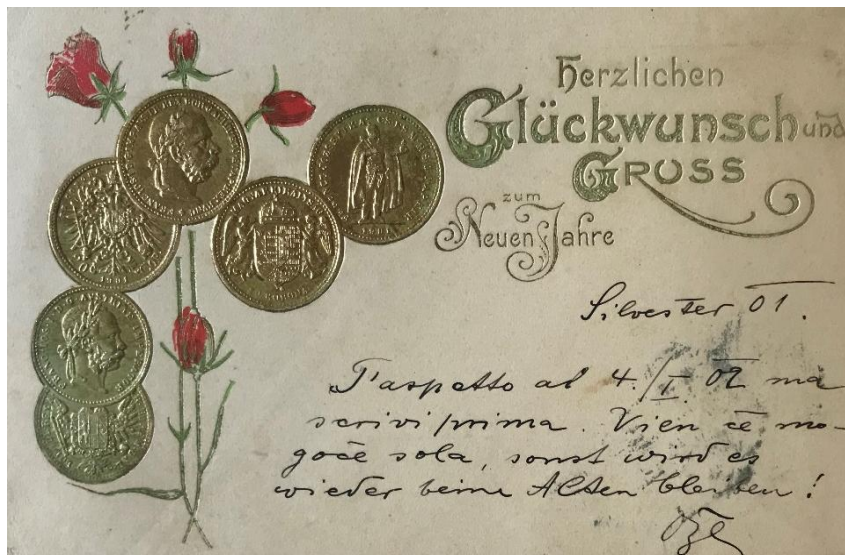 Herzlichen
Glückwunsch und
Gruss
zum
Neuen Jahre
Silvester 01.
T'aspetto al 4./I. 02 ma
scrivi prima. Vien če mo-
goče sola, sonst wird es
wieder beim Alten bleiben!